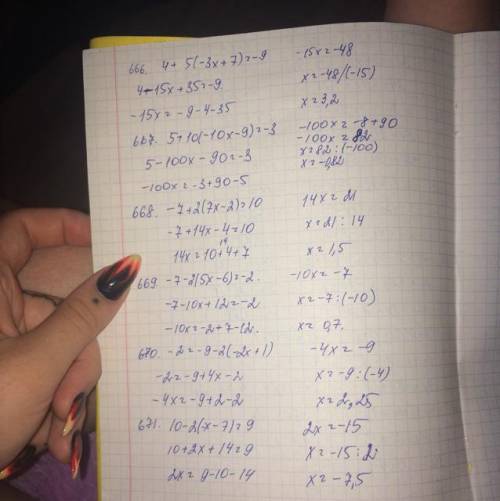 666. 4+ 5(-3x+7)=-9
4-15x+35=-9.
-15x = -9-4-35
-15x=-48
x=-48/(-15)
x=3,2
667. 5+10(-10x-9)=-3
5-100x-90=-3
-100x=-3+90-5
-100x=-8+90
-100x=82
x=82:(-100)
x=-0,82
668. -7+2(7x-2)=10
-7+14x-4=10
14x=10+4+7
14x=21
x=21:14
x=1,5
669. -7-2(5x-6)=-2.
-7-10x+12=-2
-10x=-2+7-12.
-10x=-7
x=-7:(-10)
x=0,7.
670. -2=-9-2(-2x+1)
-2=-9+4x-2
-4x=-9+2-2
-4x=-9
x=-9:(-4)
x=2,25
671. 10-2(x-7)=9
10+2x+14=9
2x=9-10-14
2x=-15
x=-15:2
x=-7,5